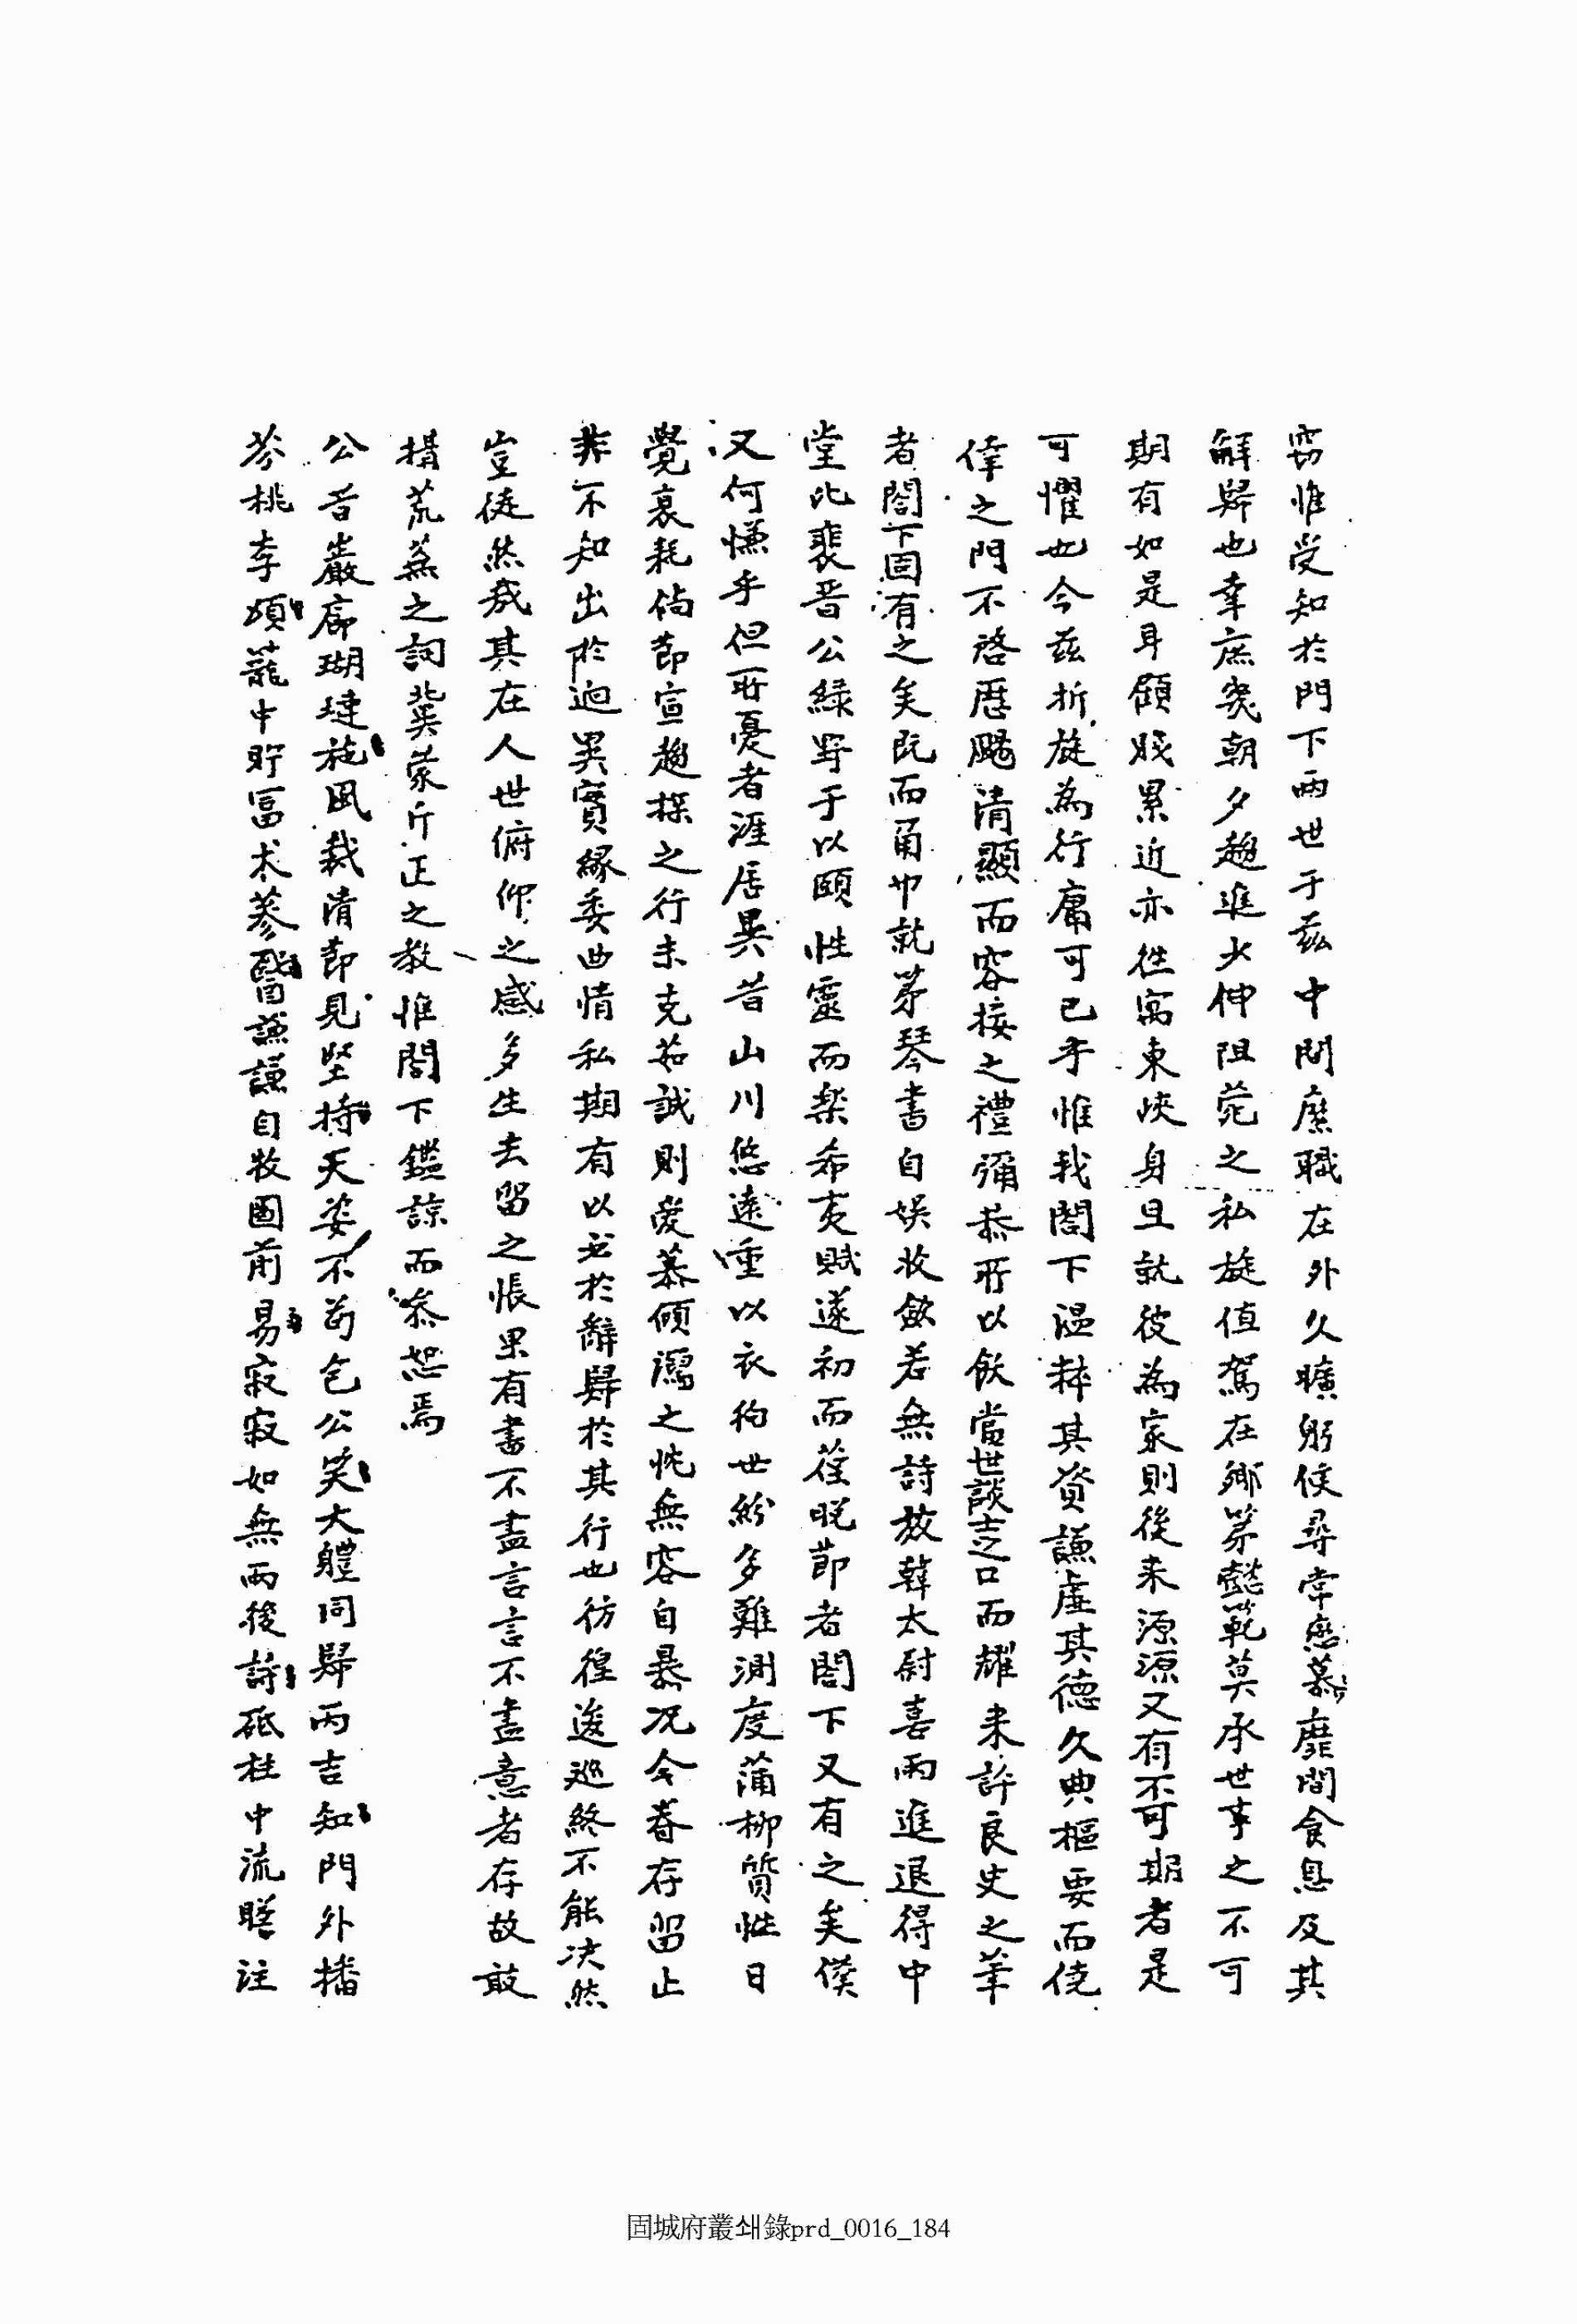 窃惟受知於門下兩世于茲中間縻職在外久曠躬候尋常戀慕靡間食息及其
解歸也幸庶幾朝夕趨進少伸阻菀之私旋值駕在鄕第懿範莫承世事之不可
期有如是耳顧賤累近亦往寓東峽身且就彼為家則後來源源又有不可期者是
可懼也今茲折旋為行庸可已乎惟我閤下溫粹其資謙虛其德久典樞要而僥
倖之門不啓歷颺清顯而容接之禮彌恭所以飫當世談士之口而耀來許良史之筆
者閤下固有之矣旣而甬巾就第琴書自娛收斂若無詩放韓太尉喜雨進退得中
堂比裴晋公綠野于以頤性靈而樂希夷賦遂初而荏晩節者閤下又有之矣僕
又何慊乎但所憂者涯居異昔山川悠遠重以衣徇世紛多難測度蒲柳質性日
覺衰耗倘節宣趨探之行未克如誠則愛慕傾瀉之忱無容自暴况今春存留止
非不知出於迫異實緣委曲情私期有以出於辭歸於其行也彷徨逡巡終不能决然
豈徒然哉其在人世俯仰之感多生去留之悵果有書不盡言言不盡意者存故敢
搆荒蕪之詞冀蒙斤正之教惟閤下鑑諒而恭恕焉
公昔巖廊瑚璉施風裁清節見堅持天姿不苟包公笑大軆同歸丙吉知門外播
芬桃李頌籠中貯富朮蔘醫謙謙自牧園前易寂寂如無雨後詩砥柱中流睽注